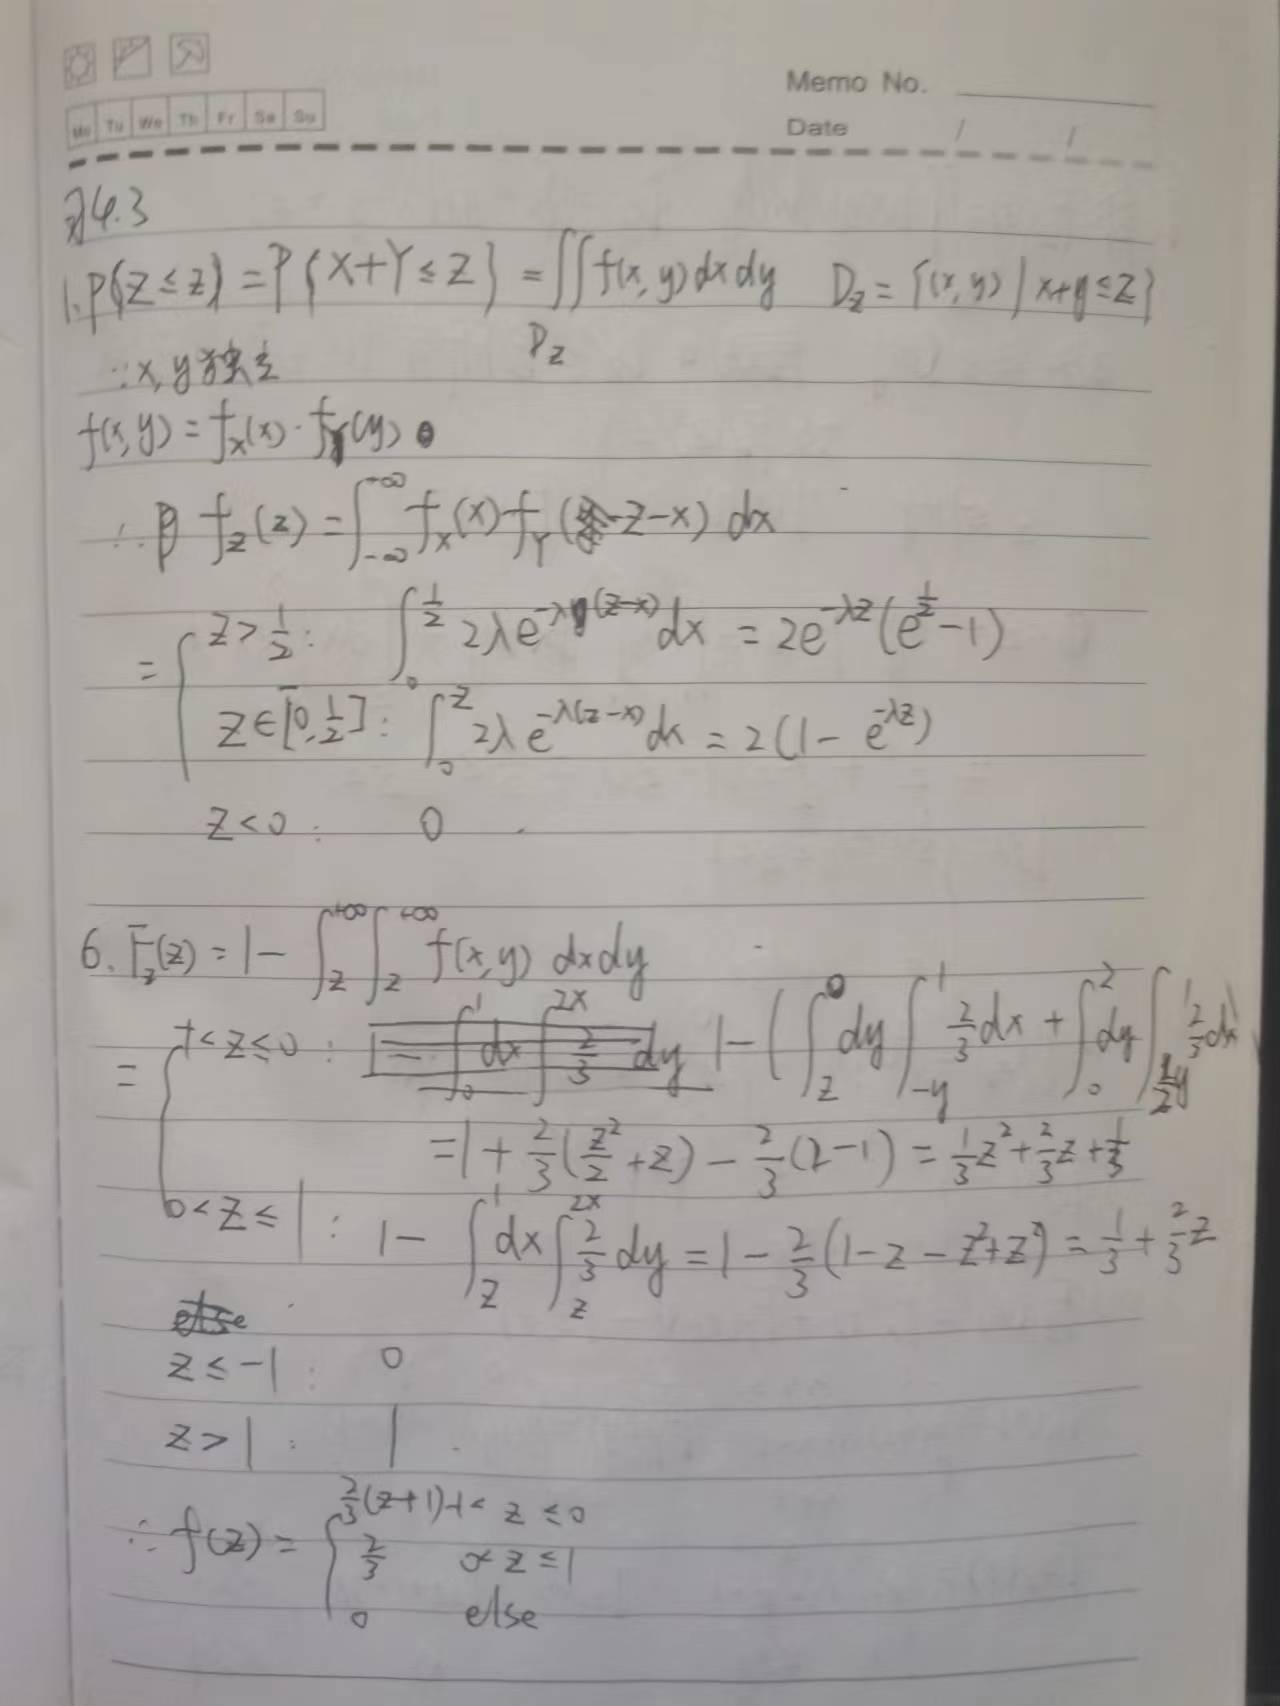 Memo No.
Mo Tu We Th Fr Sa Su
Date / /
习4.3
1. P(Z≤z) = P{X+Y≤Z} = ∬f(x,y)dxdy D_z = {(x,y) | x+y≤Z}
D_z
∵x,y独立
f(x,y) = f_X(x)·f_Y(y)
∴ f_Z(z) = ∫_{-∞}^{+∞} f_X(x) f_Y(z-x) dx
= { z>1/2: ∫_0^{1/2} 2λe^{-λ(z-x)}dx = 2e^{-λz}(e^{1/2}-1)
z∈[0,1/2]: ∫_0^z 2λe^{-λ(z-x)}dx = 2(1-e^{-λz})
z<0: 0
6. F_Z(z) = 1-∫_z^{+∞}∫_z^{+∞} f(x,y) dxdy
= { -1<z≤0: 1-∫_0^1 dx∫^{2x} 2/3 dy 1-(∫_z^0 dy∫_{-y}^1 2/3 dx+∫_0^2 dy∫_{1/2 y}^1 2/3 dx)
=1+2/3(z²/2+z)-2/3(2-1) = 1/3z²+2/3z+1/3
0<z≤1: 1-∫_z^1 dx∫_z^{2x} 2/3 dy = 1-2/3(1-z-z²+z²) = 1/3+2/3z
else
z≤-1: 0
z>1: 1
∴ f(z) = { 2/3(z+1) -1<z≤0
2/3 0<z≤1
0 else